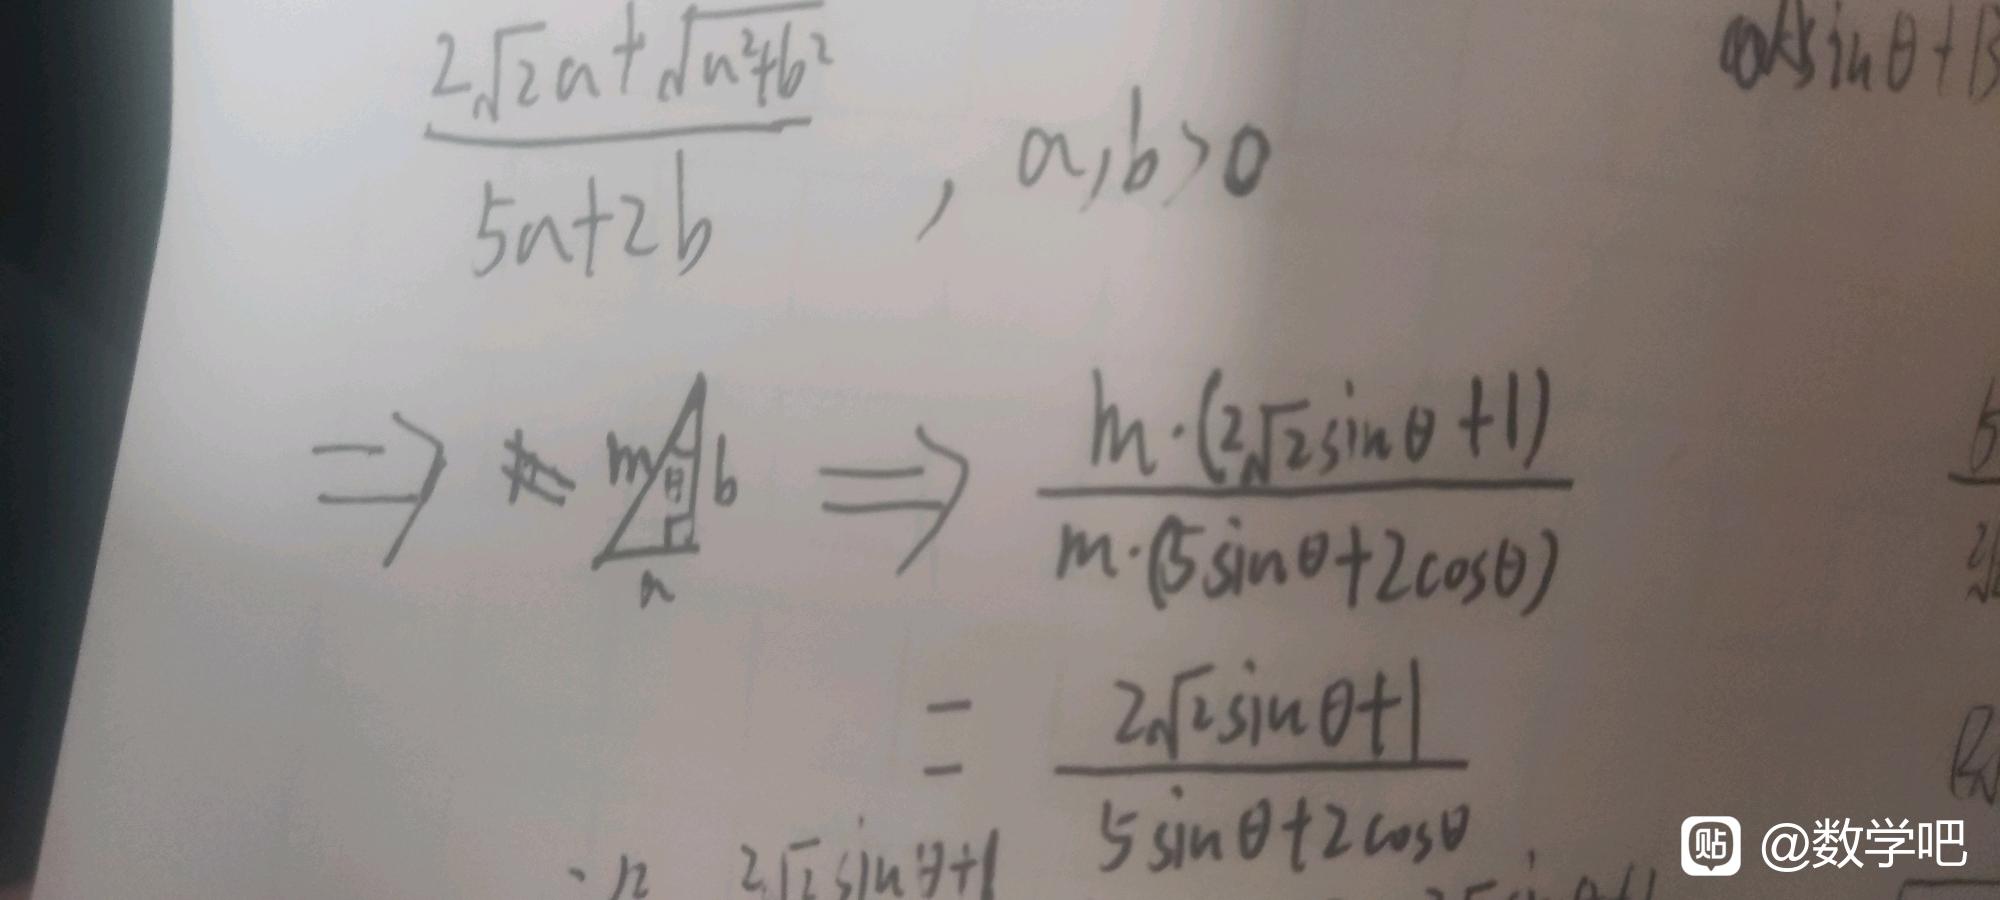 2√2a+√a²+b²
5a+2b
, a,b>0
sinθ+B
⇒ m θ b a ⇒
m·(2√2sinθ+1)
m·(5sinθ+2cosθ)
=
2√2sinθ+1
5sinθ+2cosθ
2√2sinθ+1
贴 @数学吧